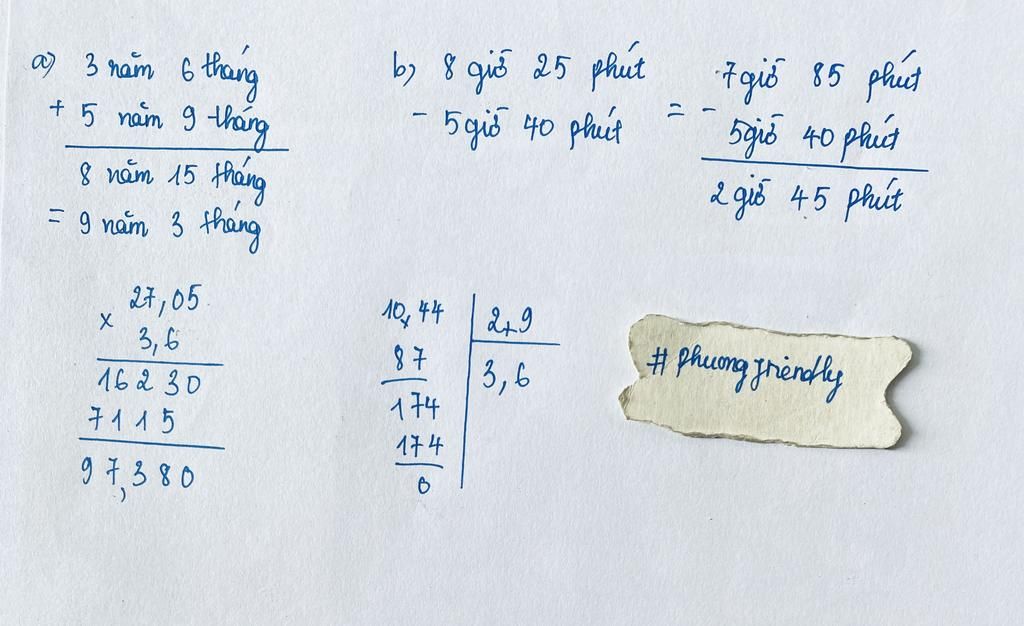 a) 3 năm 6 tháng
+ 5 năm 9 tháng
8 năm 15 tháng
= 9 năm 3 tháng
b) 8 giờ 25 phút
- 5 giờ 40 phút
= - 7 giờ 85 phút
5 giờ 40 phút
2 giờ 45 phút
27,05
x 3,6
16 230
7115
97,380
10,44 2,9
87 3,6
174
174
0
# phuongfriendly